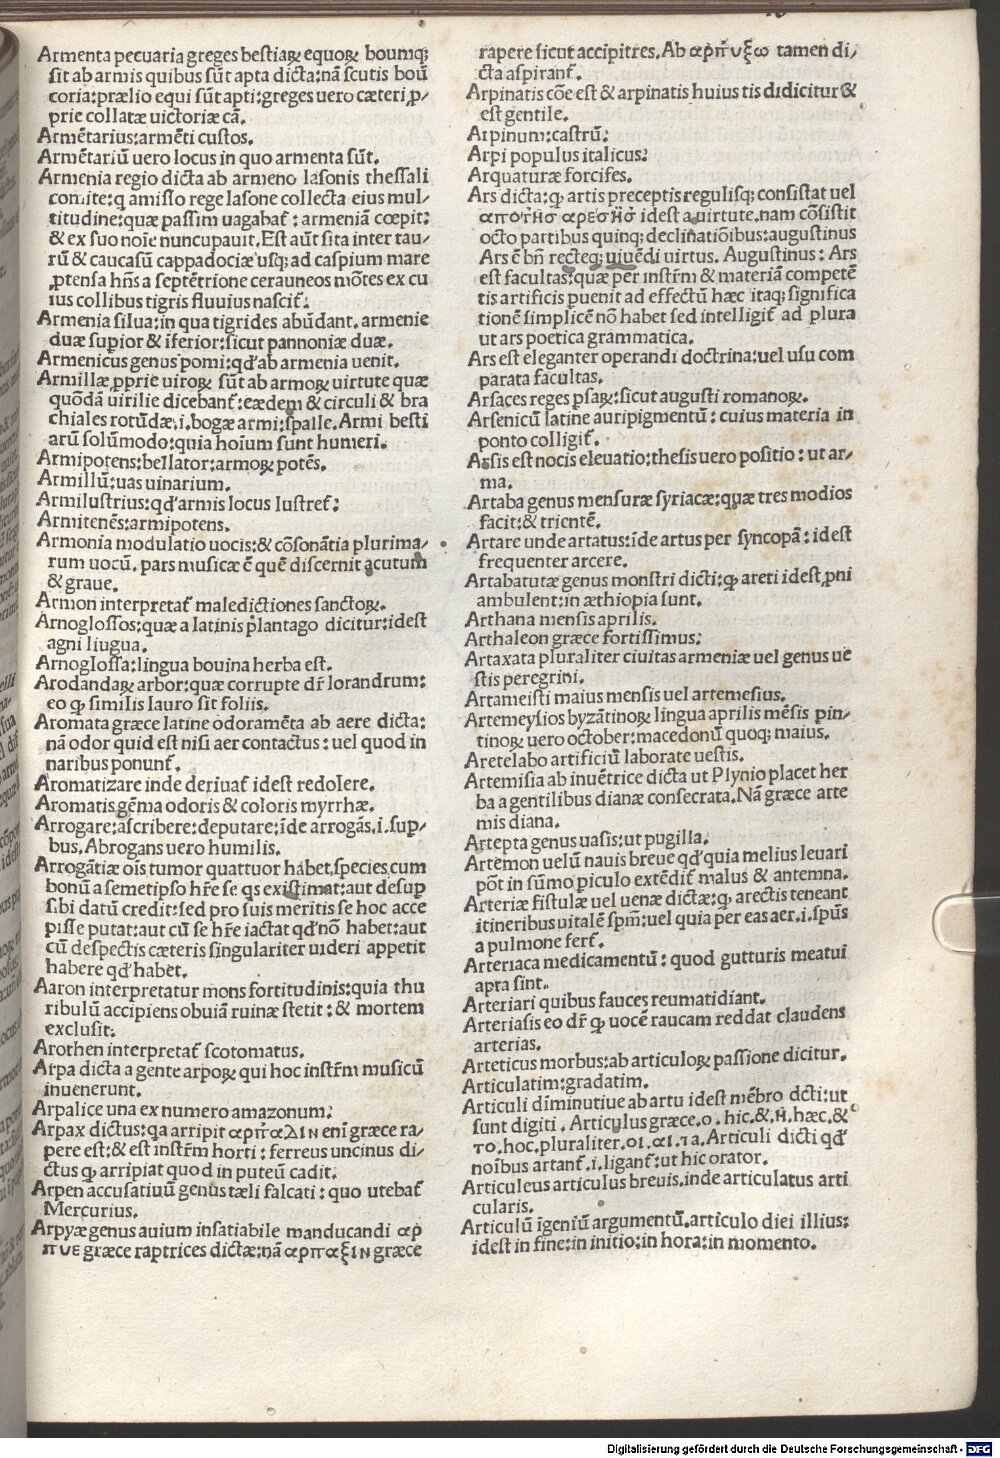 Armenta pecuaria greges bestiaꝝ equoꝝ boumq;
sit ab armis quibus sūt apta dicta:nā scutis boū
coria:prælio equi sūt apti:greges uero cæteri ꝓ/
prie collatæ uictoriæ cā.
Armētarius:armēti custos.
Armētariū uero locus in quo armenta sūt.
Armenia regio dicta ab armeno Iasonis thessali
comite:q amisso rege Iasone collecta eius mul/
titudine:quæ passim uagabat̃: armeniā cœpit:
& ex suo noīe nuncupauit. Est aūt sita inter tau/
rū & caucasū cappadociæ usq; ad caspium mare
ꝓtensa hñs a septētrione cerauneos mōtes ex cu
ius collibus tigris fluuius nascit̃:
Armenia silua:in qua tigrides abūdant. armenie
duæ supior & iferior:sicut pannoniæ duæ.
Armenicus genus pomi:qd'ab armenia uenit.
Armillæ ꝓprie uiroꝝ sūt ab armoꝝ uirtute quæ
quōdā uirilie dicebant̃:eædem & circuli & bra
chiales rotūdæ.i.bogæ armi:spalle. Armi besti
arū solūmodo:quia hoīum sunt humeri.
Armipotens:bellator:armoꝝ potēs.
Armillū:uas uinarium.
Armilustrius:qd'armis locus lustret̃:
Armitenēs:armipotens.
Armonia modulatio uocis:& cōsonātia plurima/
rum uocū. pars musicæ ē quē discernit acutum
& graue.
Armon interpretat̃ maledictiones sanctoꝝ.
Arnoglossos:quæ a latinis plantago dicitur:idest
agni liugua.
Arnoglossa:lingua bouina herba est.
Arodandaꝝ arbor:quæ corrupte dr̃ lorandrum:
eo ꝙ similis lauro sit foliis.
Aromata græce latine odoramēta ab aere dicta:
nā odor quid est nisi aer contactus : uel quod in
naribus ponunt̃.
Aromatizare inde deriuat̃ idest redolere.
Aromatis gēma odoris & coloris myrrhæ.
Arrogare:ascribere:deputare:īde arrogās.i.sup/
bus. Abrogans uero humilis.
Arrogātiæ oīs tumor quattuor habet species cum
bonū a semetipso hr̃e se qs existimat:aut desup
sibi datū credit:sed pro suis meritis se hoc acce
pisse putat:aut cū se hr̃e iactat qd'nō habet:aut
cū despectis cæteris singulariter uideri appetit
habere qd'habet.
Aaron interpretatur mons fortitudinis:quia thu
ribulū accipiens obuiā ruinæ stetit : & mortem
exclusit:
Arothen interpretat̃ scotomatus.
Arpa dicta a gente arpoꝝ qui hoc instr̃m musicū
inuenerunt.
Arpalice una ex numero amazonum:
Arpax dictus:qa arripit αρπαλιν eni græce ra/
pere est:& est instr̃m horti : ferreus uncinus di/
ctus ꝙ arripiat quod in puteū cadit.
Arpen accusatiuū genus tæli falcati : quo utebat̃
Mercurius.
Arpyæ genus auium insatiabile manducandi αρ
πυε græce raptrices dictæ:nā αρπαξιν græce
rapere sicut accipitres. Ab αρπυξω tamen di/
cta aspirant̃.
Arpinatis cōe est & arpinatis huius tis didicitur &
est gentile.
Arpinum:castrū:
Arpi populus italicus:
Arquaturæ forcifes.
Ars dicta:ꝙ artis preceptis regulisq; consistat uel
αποτησ αρεσησ idest a uirtute. nam cōsistit
octo partibus quinq; declinatiōibus:augustinus
Ars ē bñ recteq; uiuēdi uirtus. Augustinus : Ars
est facultas:quæ per instr̃m & materiā competē
tis artificis puenit ad effectū hæc itaq; significa
tionē simplicē nō habet sed intelligit̃ ad plura
ut ars poetica grammatica.
Ars est eleganter operandi doctrina:uel usu com
parata facultas.
Arsaces reges psaꝝ:sicut augusti romanoꝝ.
Arsenicū latine auripigmentū : cuius materia in
ponto colligit̃.
Arsis est uocis eleuatio:thesis uero positio : ut ar/
ma.
Artaba genus mensuræ syriacæ:quæ tres modios
facit:& trientē.
Artare unde artatus:īde artus per syncopā : idest
frequenter arcere.
Artabatutæ genus monstri dicti:ꝙ areti idest ꝓni
ambulent:in æthiopia sunt.
Arthana mensis aprilis.
Arthaleon græce fortissimus:
Artaxata pluraliter ciuitas armeniæ uel genus ue
stis peregrini.
Artameisti maius mensis uel artemesius.
Artemeysios byzātinoꝝ lingua aprilis mēsis pin/
tinoꝝ uero october:macedonū quoq; maius.
Aretelabo artificiū laborate uestis.
Artemisia ab inuētrice dicta ut Plynio placet her
ba a gentilibus dianæ consecrata. Nā græce arte
mis diana.
Artepta genus uasis:ut pugilla.
Artemon uelū nauis breue qd'quia melius leuari
pōt in sūmo piculo extēdit̃ malus & antemna.
Arteriæ fistulæ uel uenæ dictæ:ꝙ arectis teneant
itineribus uitalē spm̄:uel quia per eas aer.i.spūs
a pulmone fert̃.
Arteriaca medicamentū : quod gutturis meatui
apta sint.
Arteriari quibus fauces reumatidiant.
Arteriasis eo dr̃ ꝙ uocē raucam reddat claudens
arterias.
Arteticus morbus:ab articuloꝝ passione dicitur.
Articulatim:gradatim.
Articuli dīminutiue ab artu idest mēbro dcti:ut
sunt digiti. Articulus græce.ο.hic.&.η.hæc.&
το.hoc.pluraliter.οι.αι.τα.Articuli dicti qd'
noībus artant̃.i.ligant̃:ut hic orator.
Articuleus articulus breuis.inde articulatus arti
cularis.
Articulū īgeniū argumentū.articulo diei illius:
idest in fine:in initio:in hora:in momento.
Digitalisierung gefördert durch die Deutsche Forschungsgemeinschaft - DFG